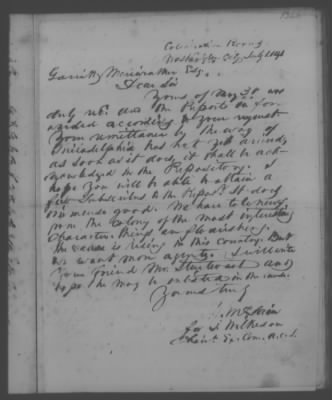 Colonization Rooms
Washington City July 1841
Garritt Meriwether Esq.
Dear Sir
Yours of May 30 was
duly rec. and the Reports on for
warded according to your request
Your remittance by the way of
Philadelphia has not yet arrived,
as soon as it does, it shall be ack-
nowledged in the Repository. I
hope you will be able to obtain a
few Subscribers to the Repos. It does
immense good. We have late news
from the Colony of the most interesting
Character. Things are flourishing.
The cause is rising in this country. But
we want more agents. I will write
your friend Mr. and
hope he may be enlisted in the cause.
Yours truly
W. McLain
for S. Wilkeson
Chair. Ex. Com. A.C.S.